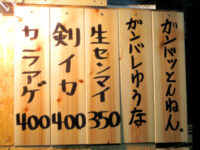 ガンバッとんねん。
ガンバレゆうな
生センマイ 350
剣イカ 400
カラアゲ 400